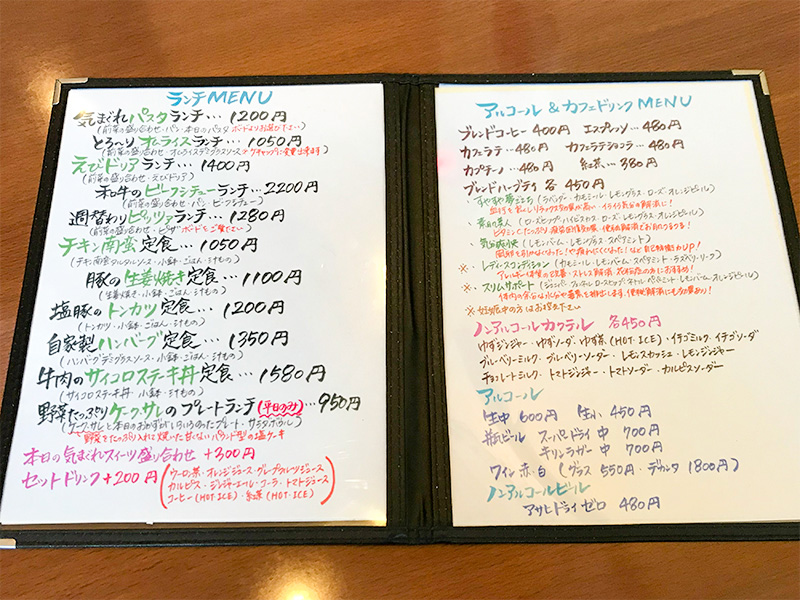 ランチMENU
気まぐれパスタランチ… 1200円
(前菜の盛り合わせ・パン・本日のパスタ ボードよりお選び下さい)
とろ〜りオムライスランチ… 1050円
(前菜の盛り合わせ・オムライスデミグラスソース
えびドリアランチ… 1400円
(前菜の盛り合わせ・えびドリア)
和牛のビーフシチューランチ…2200円
(前菜の盛り合わせ・パン・ビーフシチュー)
週替わりピッツァランチ… 1280円
(前菜の盛り合わせ・ピザ ボードをご覧下さい)
チキン南蛮定食… 1050円
(チキン南蛮タルタルソース・小鉢・ごはん・汁もの)
豚の生姜焼き定食… 1100円
(生姜焼き・小鉢・ごはん・汁もの)
塩豚のトンカツ定食… 1200円
(トンカツ・小鉢・ごはん・汁もの)
自家製ハンバーグ定食… 1350円
(ハンバーグデミグラスソース・小鉢・ごはん・汁もの)
牛肉のサイコロステーキ丼定食… 1580円
(サイコロステーキ丼・小鉢・汁もの)
野菜たっぷりケークサレのプレートランチ(平日のみ)… 950円
(ケークサレと本日のおかずがいろいろのったプレート・サラダボウル)
野菜をたっぷり入れて焼いた甘くないパウンド型の塩ケーキ
本日の気まぐれスイーツ盛り合わせ +300円
セットドリンク +200円
(ウーロン茶・オレンジジュース・グレープフルーツジュース
カルピス・ジンジャーエール・コーラ・トマトジュース
コーヒー(HOT・ICE)・紅茶(HOT・ICE))
アルコール & カフェドリンク MENU
ブレンドコーヒー 400円 エスプレッソ… 480円
カフェラテ … 480円 カフェラテショコラ… 480円
カプチーノ … 480円 紅茶… 380円
ブレンドハーブティ 各 450円
・すやすや夢ごこち (ラベンダー・カモミール・レモングラス・ローズ・オレンジピール)
・茶目の美人 (ローズヒップ・ハイビスカス・ローズ・レモングラス・オレンジピール)
・気分爽快 (レモンバーム・レモングラス・スペアミント)
※・レディースコンディション (カモミール・レモンバーム・スペアミント・ラズベリーリーフ)
※・スリムサポート
※ 妊娠中の方はお控え下さい
ノンアルコールカクテル 各450円
ゆずジンジャー・ゆずソーダ・ゆず茶(HOT・ICE)・イチゴミルク・イチゴソーダ
ブルーベリーミルク・ブルーベリーソーダー・レモンスカッシュ・レモンジンジャー
チョコレートミルク・トマトジンジャー・トマトソーダー・カルピスソーダー
アルコール
生中 600円 生小 450円
瓶ビール スーパードライ 中 700円
キリンラガー 中 700円
ワイン 赤・白 (グラス 550円・デカンタ 1800円)
ノンアルコールビール
アサヒドライゼロ 480円